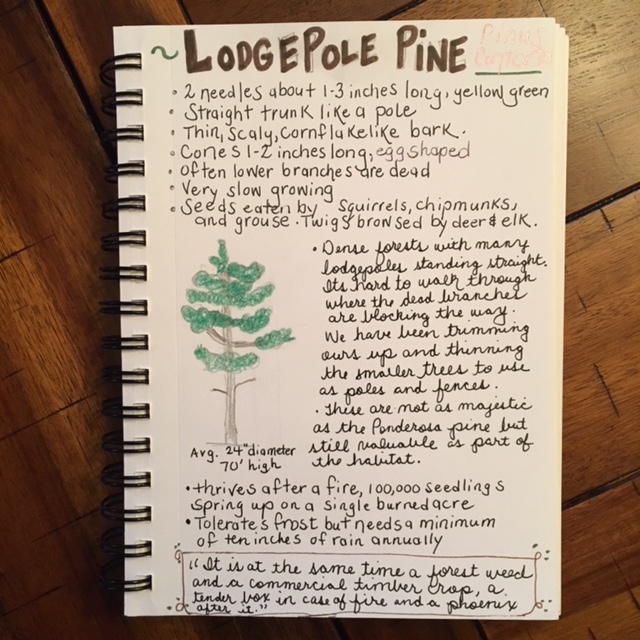 ~ LODGEPOLE PINE
Pinus
Contorta
• 2 needles about 1-3 inches long, yellow green
• Straight trunk like a pole
• Thin, Scaly, Cornflakelike bark.
• Cones 1-2 inches long, egg shaped
• Often lower branches are dead
• Very slow growing
• Seeds eaten by Squirrels, chipmunks,
and grouse. Twigs bronsed by deer & elk.
• Dense forests with many
lodgepoles standing straight.
Its hard to walk through
where the dead branches
are blocking the way.
We have been trimming
ours up and thinning
the smaller trees to use
as poles and fences.
• These are not as majestic
as the Ponderosa pine but
still valuable as part of
the habitat.
Avg. 24" diameter
70' high
• thrives after a fire, 100,000 seedlings
spring up on a single burned acre
• Tolerates frost but needs a minimum
of ten inches of rain annually
"It is at the same time a forest weed
and a commercial timber crop, a
tender box in case of fire and a phoenix
after it."